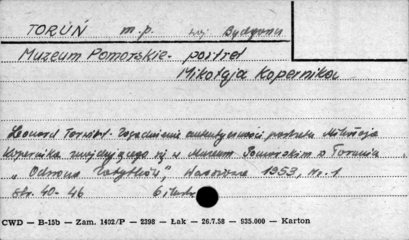 TORUŃ m.p. woj. Bydgoszcz
Muzeum Pomorskie - portret
Mikołaja Kopernika
Leonard Torwirt. Zagadnienie autentyczności portretu Mikołaja
Kopernika znajdującego się w Muzeum Pomorskim w Toruniu
„Ochrona Zabytków", Warszawa 1953, Nr. 1
Str. 40-46 6 ilustr.
CWD — B-15b — Zam. 1402/P — 2398 — Łak — 26.7.58 — 935.000 — Karton